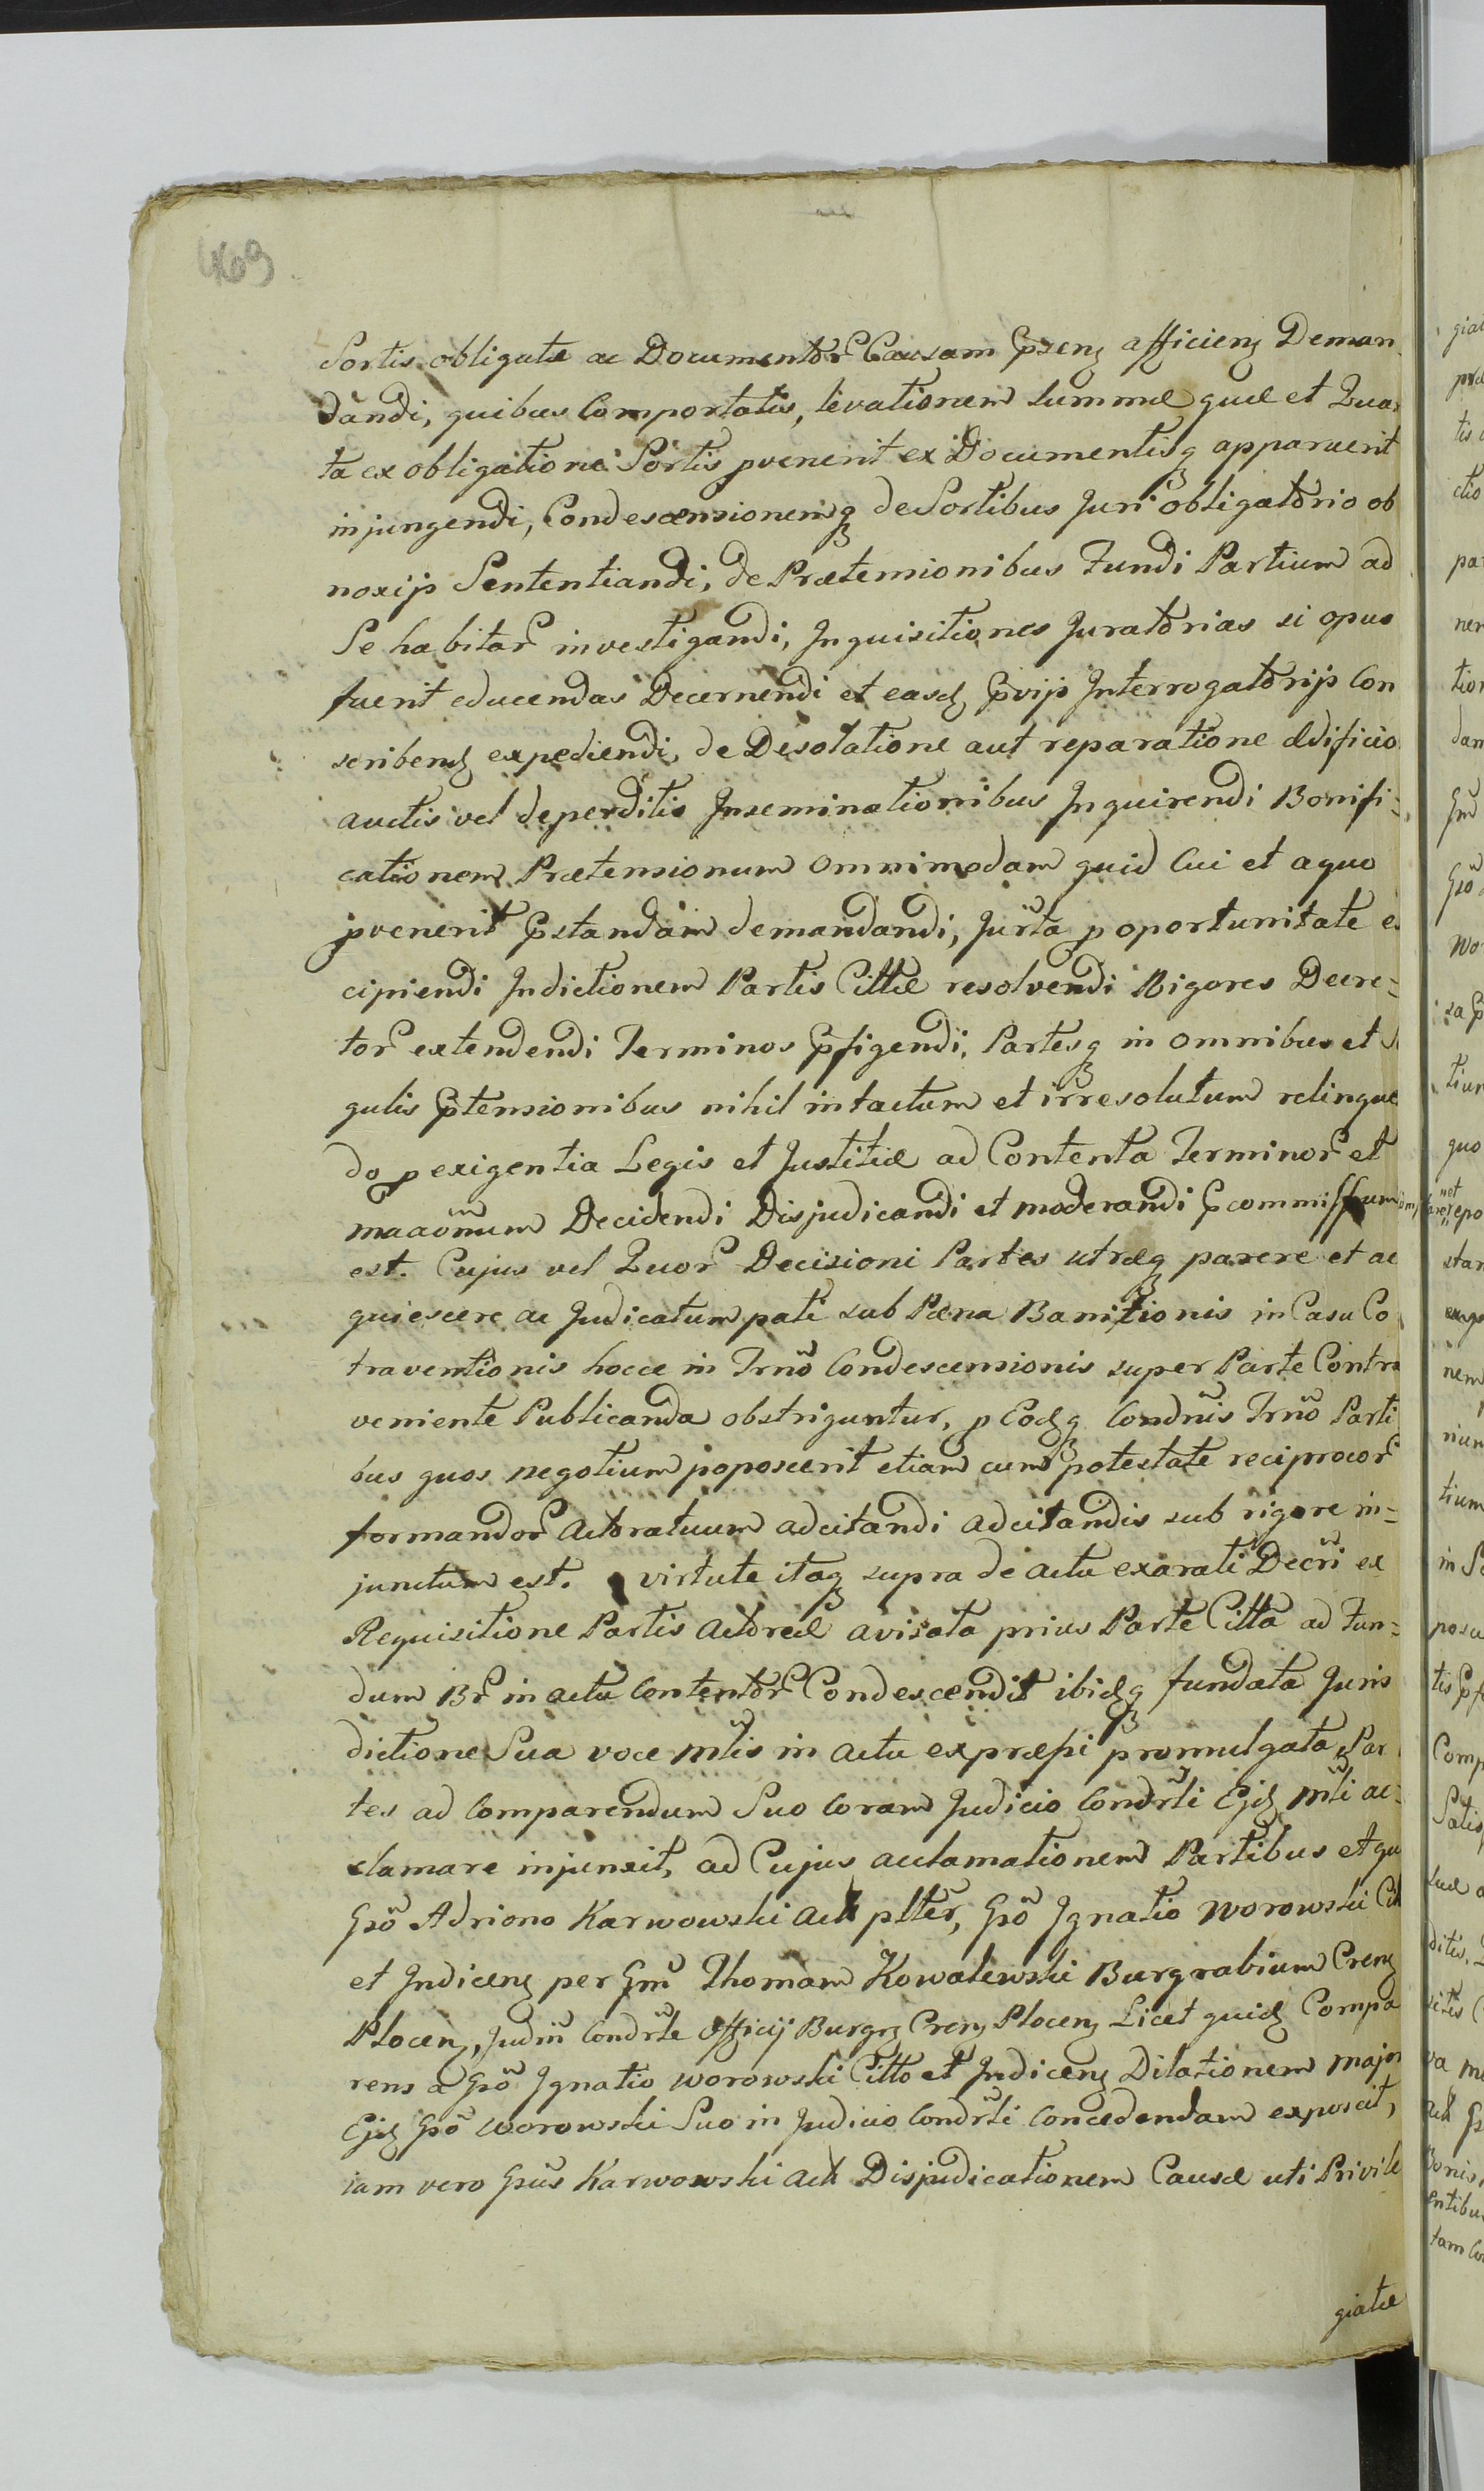 469
Sortis obligatæ ac Documentor Causam Pszenz afficienz Deman
dandi, quibus Comportatis, levationem summæ quæ et Qua
ta ex obligatione Sortis pvenerit ex Documentisq apparuerit
injungendi, Condescensionemq de Sortibus Juri obligatorio ob
noxijs Sententiandi, de Prætensionibus Fundi Partium ad
Se habitar investigandi, Inquisitiones Juratorias si opus
fuerit educendas Decernendi et easdz pvijs Interrogatorijs Con
scribendz expediendi, de Desolatione aut reparatione Ædificio
auctis vel deperditis Inseminationibus Inquirendi Bonifi=
cationem Prætensionum omnimodam quid Cui et a quo
pvenerit pstandam demandandi, Jurta p oportunitate ex
cipiendi Indictionem Partis Cittæ resolvendi Rigores Decre=
tor extendendi Terminos pfigendi, Partesq in omnibus et S
gulis ptensionibus nihil intactum et irresolutum relinque
do p exigentia Legis et Justitiæ ad Contenta Terminor et
maaõnum Decidendi Disjudicandi et moderandi p commissum
est. Cujus vel Quor Decisioni Partes utræq parere et ac
quiescere ac Judicatum pati sub Pæna Bannitionis in Casu Co
traventionis hocce in Trnõ Condescensionis super Parte Contra
veniente Publicanda obstriguntur, p Eodzq Condnis Trnõ Parti
bus quos negotium poposcerit etiam cum potestate reciprocor
formandor Actoratuum adcitandi adcitandis sub rigore in=
junctum est. virtute itaq supra de actu exarati Decri ex
Requisitione Partis Actoreæ avisata prius Parte Citta ad Fun=
dum Br in actu Contentor Condescendit ibidzq fundata Juris
dictione Sua voce mtis in actu expræssi promulgata Par
tes ad Comparendum Suo Coram Judicio Condrli Ejdz mti ac=
clamare injunxit, ad Cujus acclamationem Partibus At qu
Gsõ Adriano Karwowski act plter, Gsõ Ignatio Worowski Cit
et Indicenz per Gm Thomam Kowalewski Burgrabium Crenz
Plocenz, Judm Condrle Officij Burgz Crenz Plocenz Licet quidz Compa
rens a Gsõ Ignatio Worowski Citto et Indicenz Dilationem major
Ejdz Gsõ Worowski Suo in Judicio Condrli Concedendam exposcit,
iam vero Gsus Karwowski act Disjudicationem Causæ uti Privile
giatæ